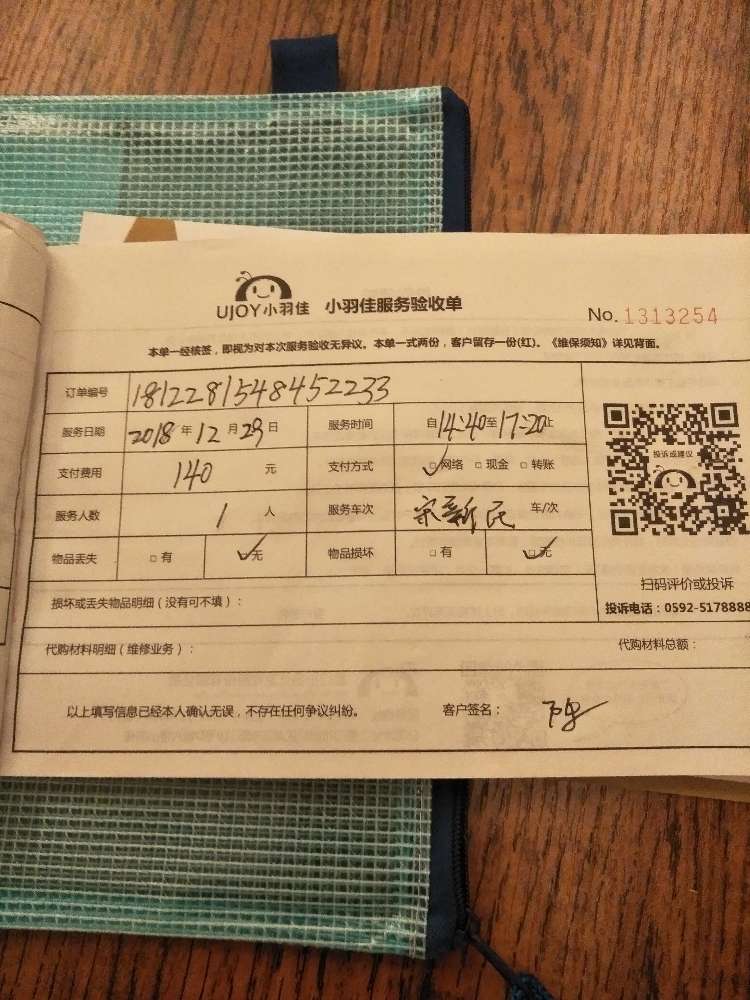 UJOY小羽佳 小羽佳服务验收单
No. 1313254
本单一经核签，即视为对本次服务验收无异议。本单一式两份，客户留存一份(红)。《维保须知》详见背面。
订单编号 1812281548452233
服务日期 2018 年 12 月 29 日 服务时间 自14:40至17:20止
支付费用 140 元 支付方式 ☑网络 □现金 □转账
服务人数 1 人 服务车次 宋新民 车/次
物品丢失 □有 ☑无 物品损坏 □有 ☑无
投诉或建议
扫码评价或投诉
投诉电话：0592-5178888
损坏或丢失物品明细（没有可不填）：
代购材料明细（维修业务）： 代购材料总额：
以上填写信息已经本人确认无误，不存在任何争议纠纷。 客户签名：